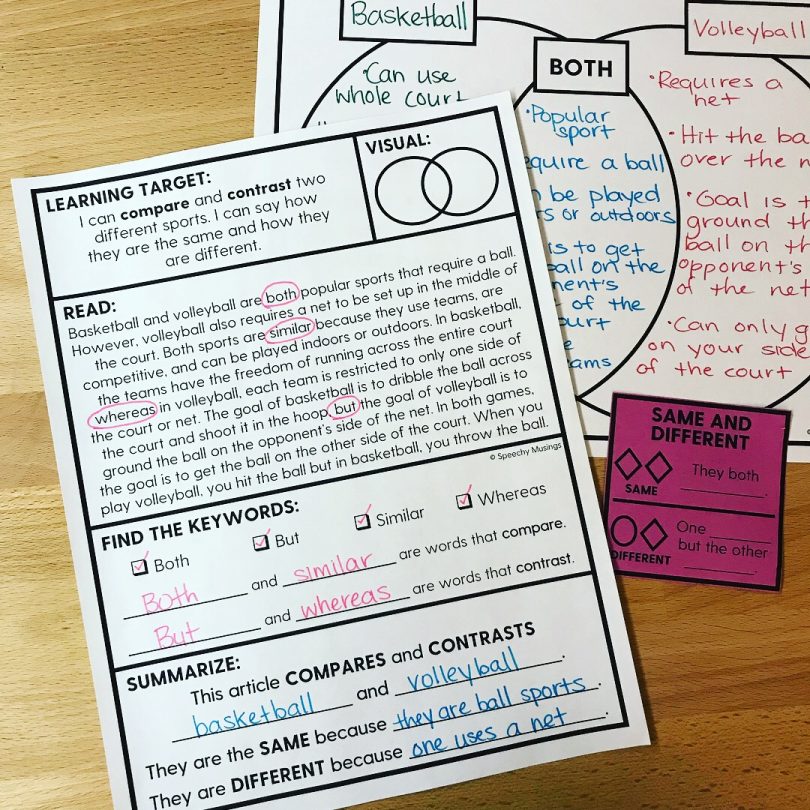 Basketball
Volleyball
BOTH
•Can use
whole court
•Popular
sport
require a ball
be played
or outdoors
is to get
ball on the
of the
•Requires a
net
•Hit the
over the
•Goal is
ground
ball on
opponent's
of the net
•Can only
on your side
of the court
LEARNING TARGET:
I can compare and contrast two
different sports. I can say how
they are the same and how they
are different.
VISUAL:
READ:
Basketball and volleyball are both popular sports that require a ball.
However, volleyball also requires a net to be set up in the middle of
the court. Both sports are similar because they use teams, are
competitive, and can be played indoors or outdoors. In basketball,
the teams have the freedom of running across the entire court
whereas in volleyball, each team is restricted to only one side of
the court or net. The goal of basketball is to dribble the ball across
the court and shoot it in the hoop, but the goal of volleyball is to
ground the ball on the opponent's side of the net. In both games,
the goal is to get the ball on the other side of the court. When you
play volleyball, you hit the ball but in basketball, you throw the ball.
© Speechy Musings
FIND THE KEYWORDS:
Both But Similar Whereas
Both and similar are words that compare.
But and whereas are words that contrast.
SUMMARIZE:
This article COMPARES and CONTRASTS
basketball and volleyball.
They are the SAME because they are ball sports.
They are DIFFERENT because one uses a net.
SAME AND
DIFFERENT
SAME
They both
DIFFERENT
One
but the other